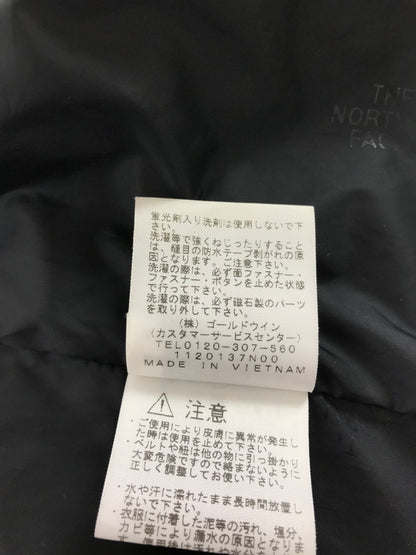 THE
NORTH
FAC
蛍光剤入り洗剤は使用しないで下
さい。
洗濯等で強くねじったりすること
は、縫目の防水テープ剥がれの原
因となります。ご注意下さい。
洗濯の際は、必ず面ファスナー・
ファスナー・ボタンを止めた状態
で行って下さい。
洗濯の際は、必ず磁石製のパーツ
を取り外して下さい。
(株) ゴールドウイン
(カスタマーサービスセンター)
TEL0120-307-560
1120137N00
MADE IN VIETNAM
注意
・ご使用により皮膚に異常が発生し
た時は使用を止めて下さい。
・ベルトや紐は他の物に引っ掛かり
大変危険ですので絡まないように
正しく調整してお使い下さい。
・水や汗に濡れたまま長時間放置し
ないで下さい。
・衣服に付着した泥等の汚れ、塩分、
カビ等により漏水の原因となりま